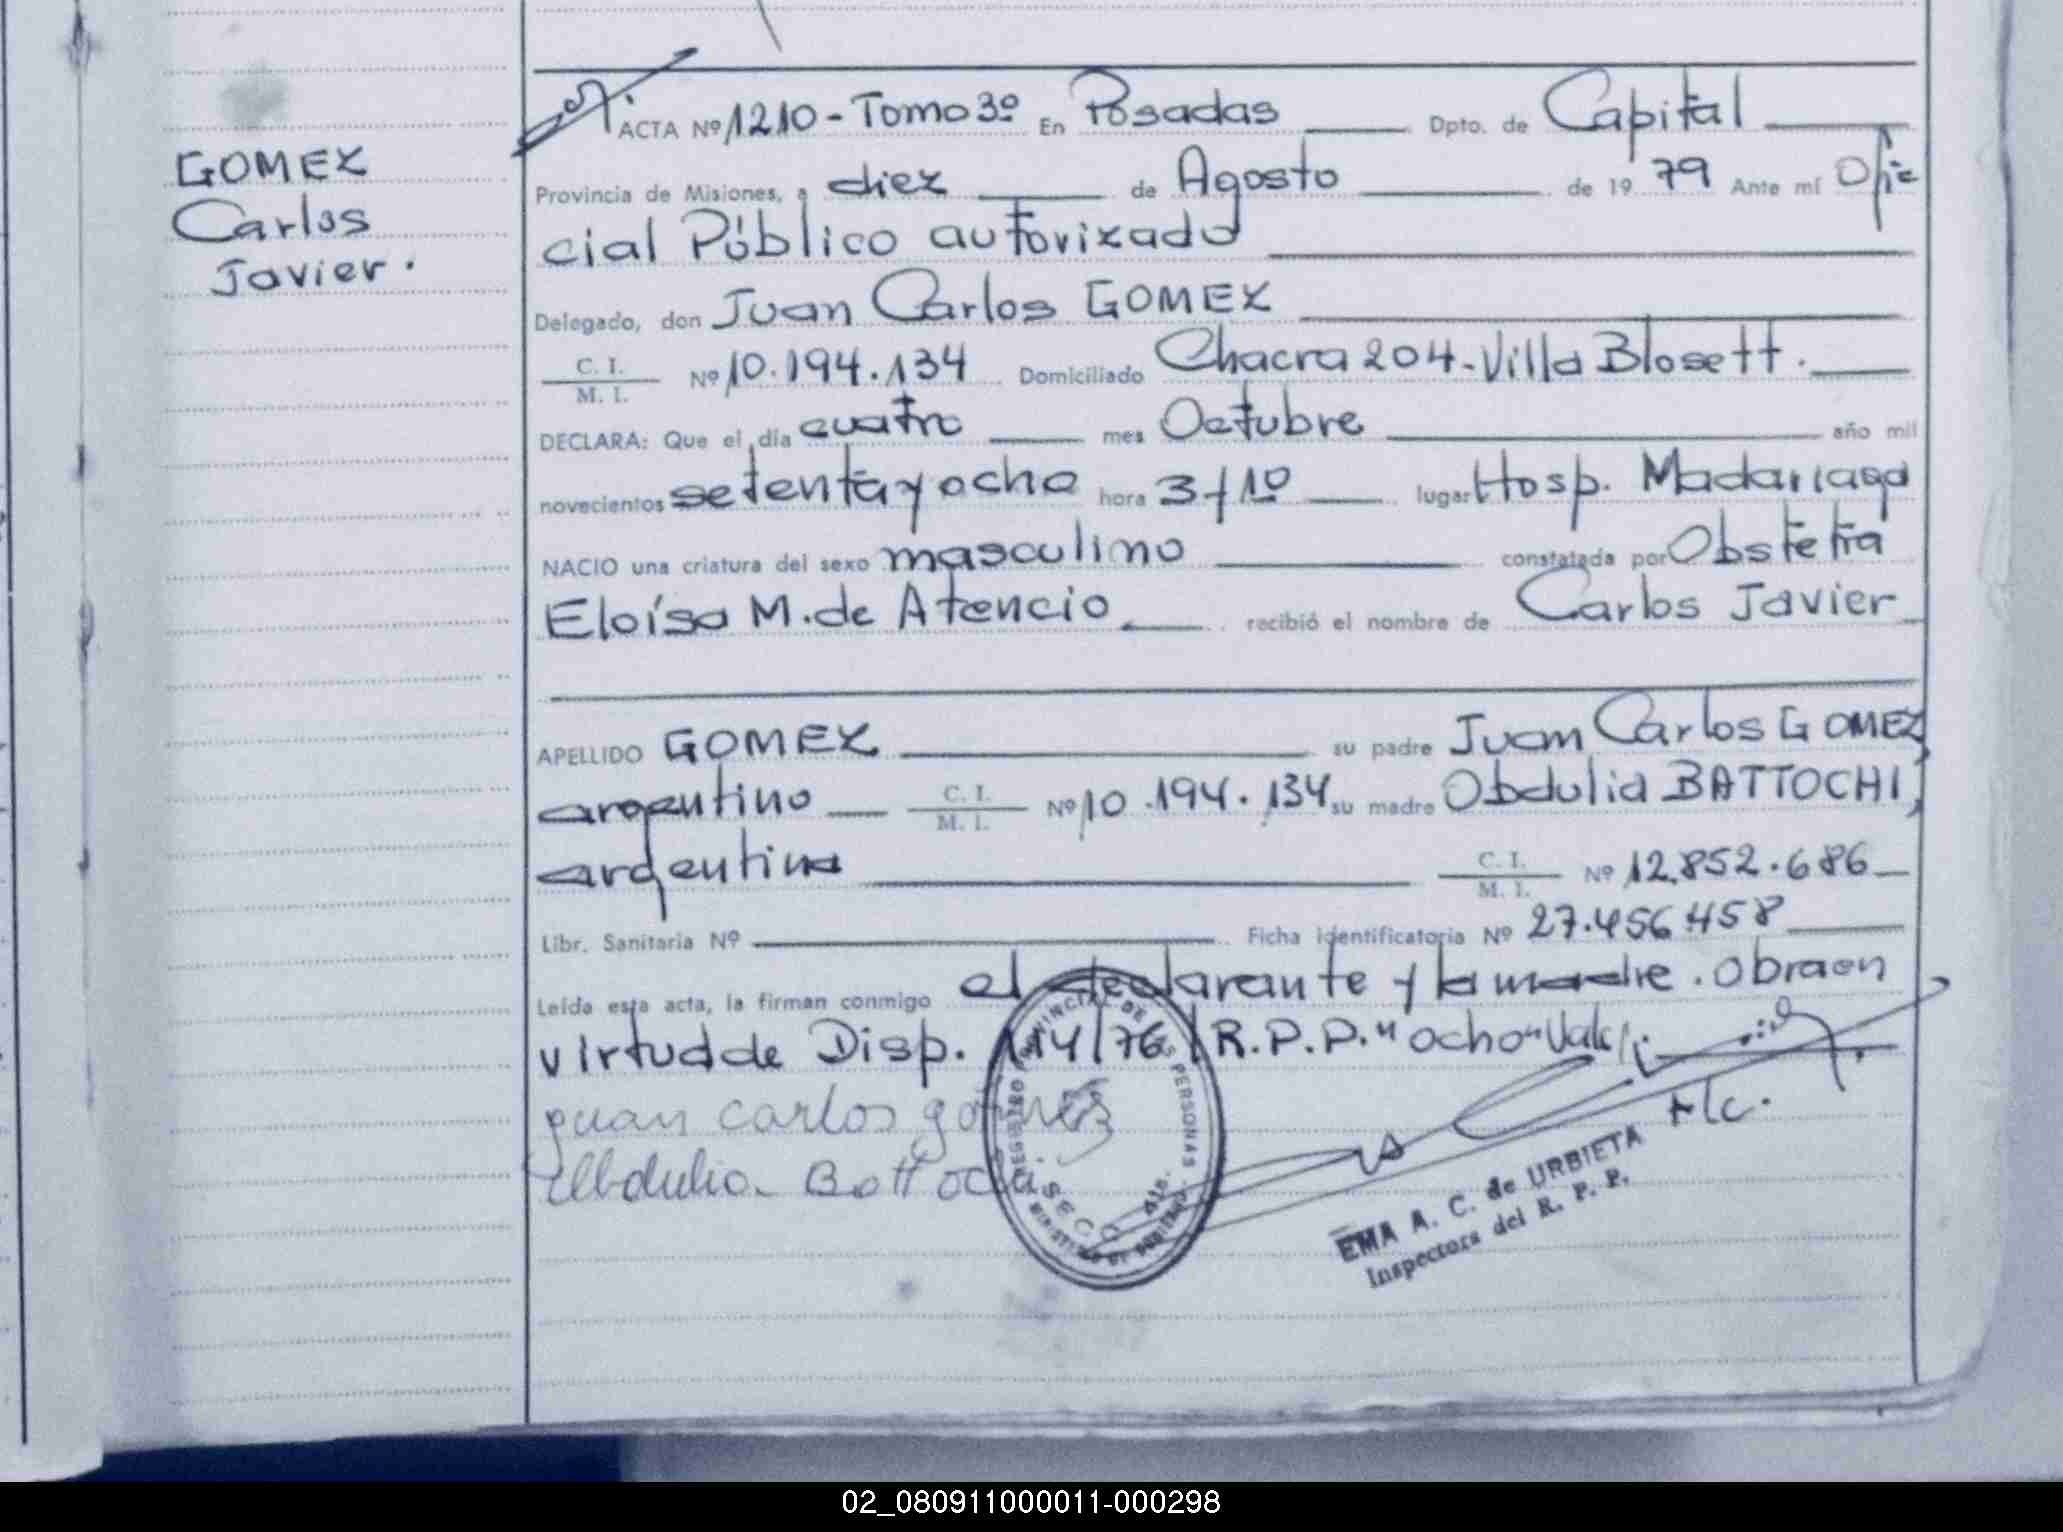 GOMEZ
Carlos
Javier.
ACTA Nº 1210 - Tomo 3º En Posadas Dpto. de Capital
Provincia de Misiones, a diez de Agosto de 1979 Ante mí Ofi
cial Público autorizado
Delegado, don Juan Carlos GOMEZ
C. I.
M. I. Nº 10.194.134 Domiciliado Chacra 204-Villa Blosett.
DECLARA: Que el día cuatro mes Octubre año mil
novecientos setenta y ocho hora 3 y 10 lugar Hosp. Madariaga
NACIO una criatura del sexo masculino constatada por Obstetra
Eloísa M. de Atencio recibió el nombre de Carlos Javier
APELLIDO GOMEZ su padre Juan Carlos GOMEZ,
argentino C. I.
M. I. Nº 10.194.134 su madre Obdulia BATTOCHI,
argentina C. I.
M. I. Nº 12.852.686
Libr. Sanitaria Nº Ficha identificatoria Nº 27.456.458
Leída esta acta, la firman conmigo el declarante y la madre. Obra en
virtud de Disp. 114/76 R.P.P. "ocho" Vale
juan carlos gomez
Obdulia Battochi
REGISTRO PROVINCIAL DE LAS PERSONAS
SECC
EMA A. C. de URBIETA
Inspectora del R. P. P.
02_080911000011-000298